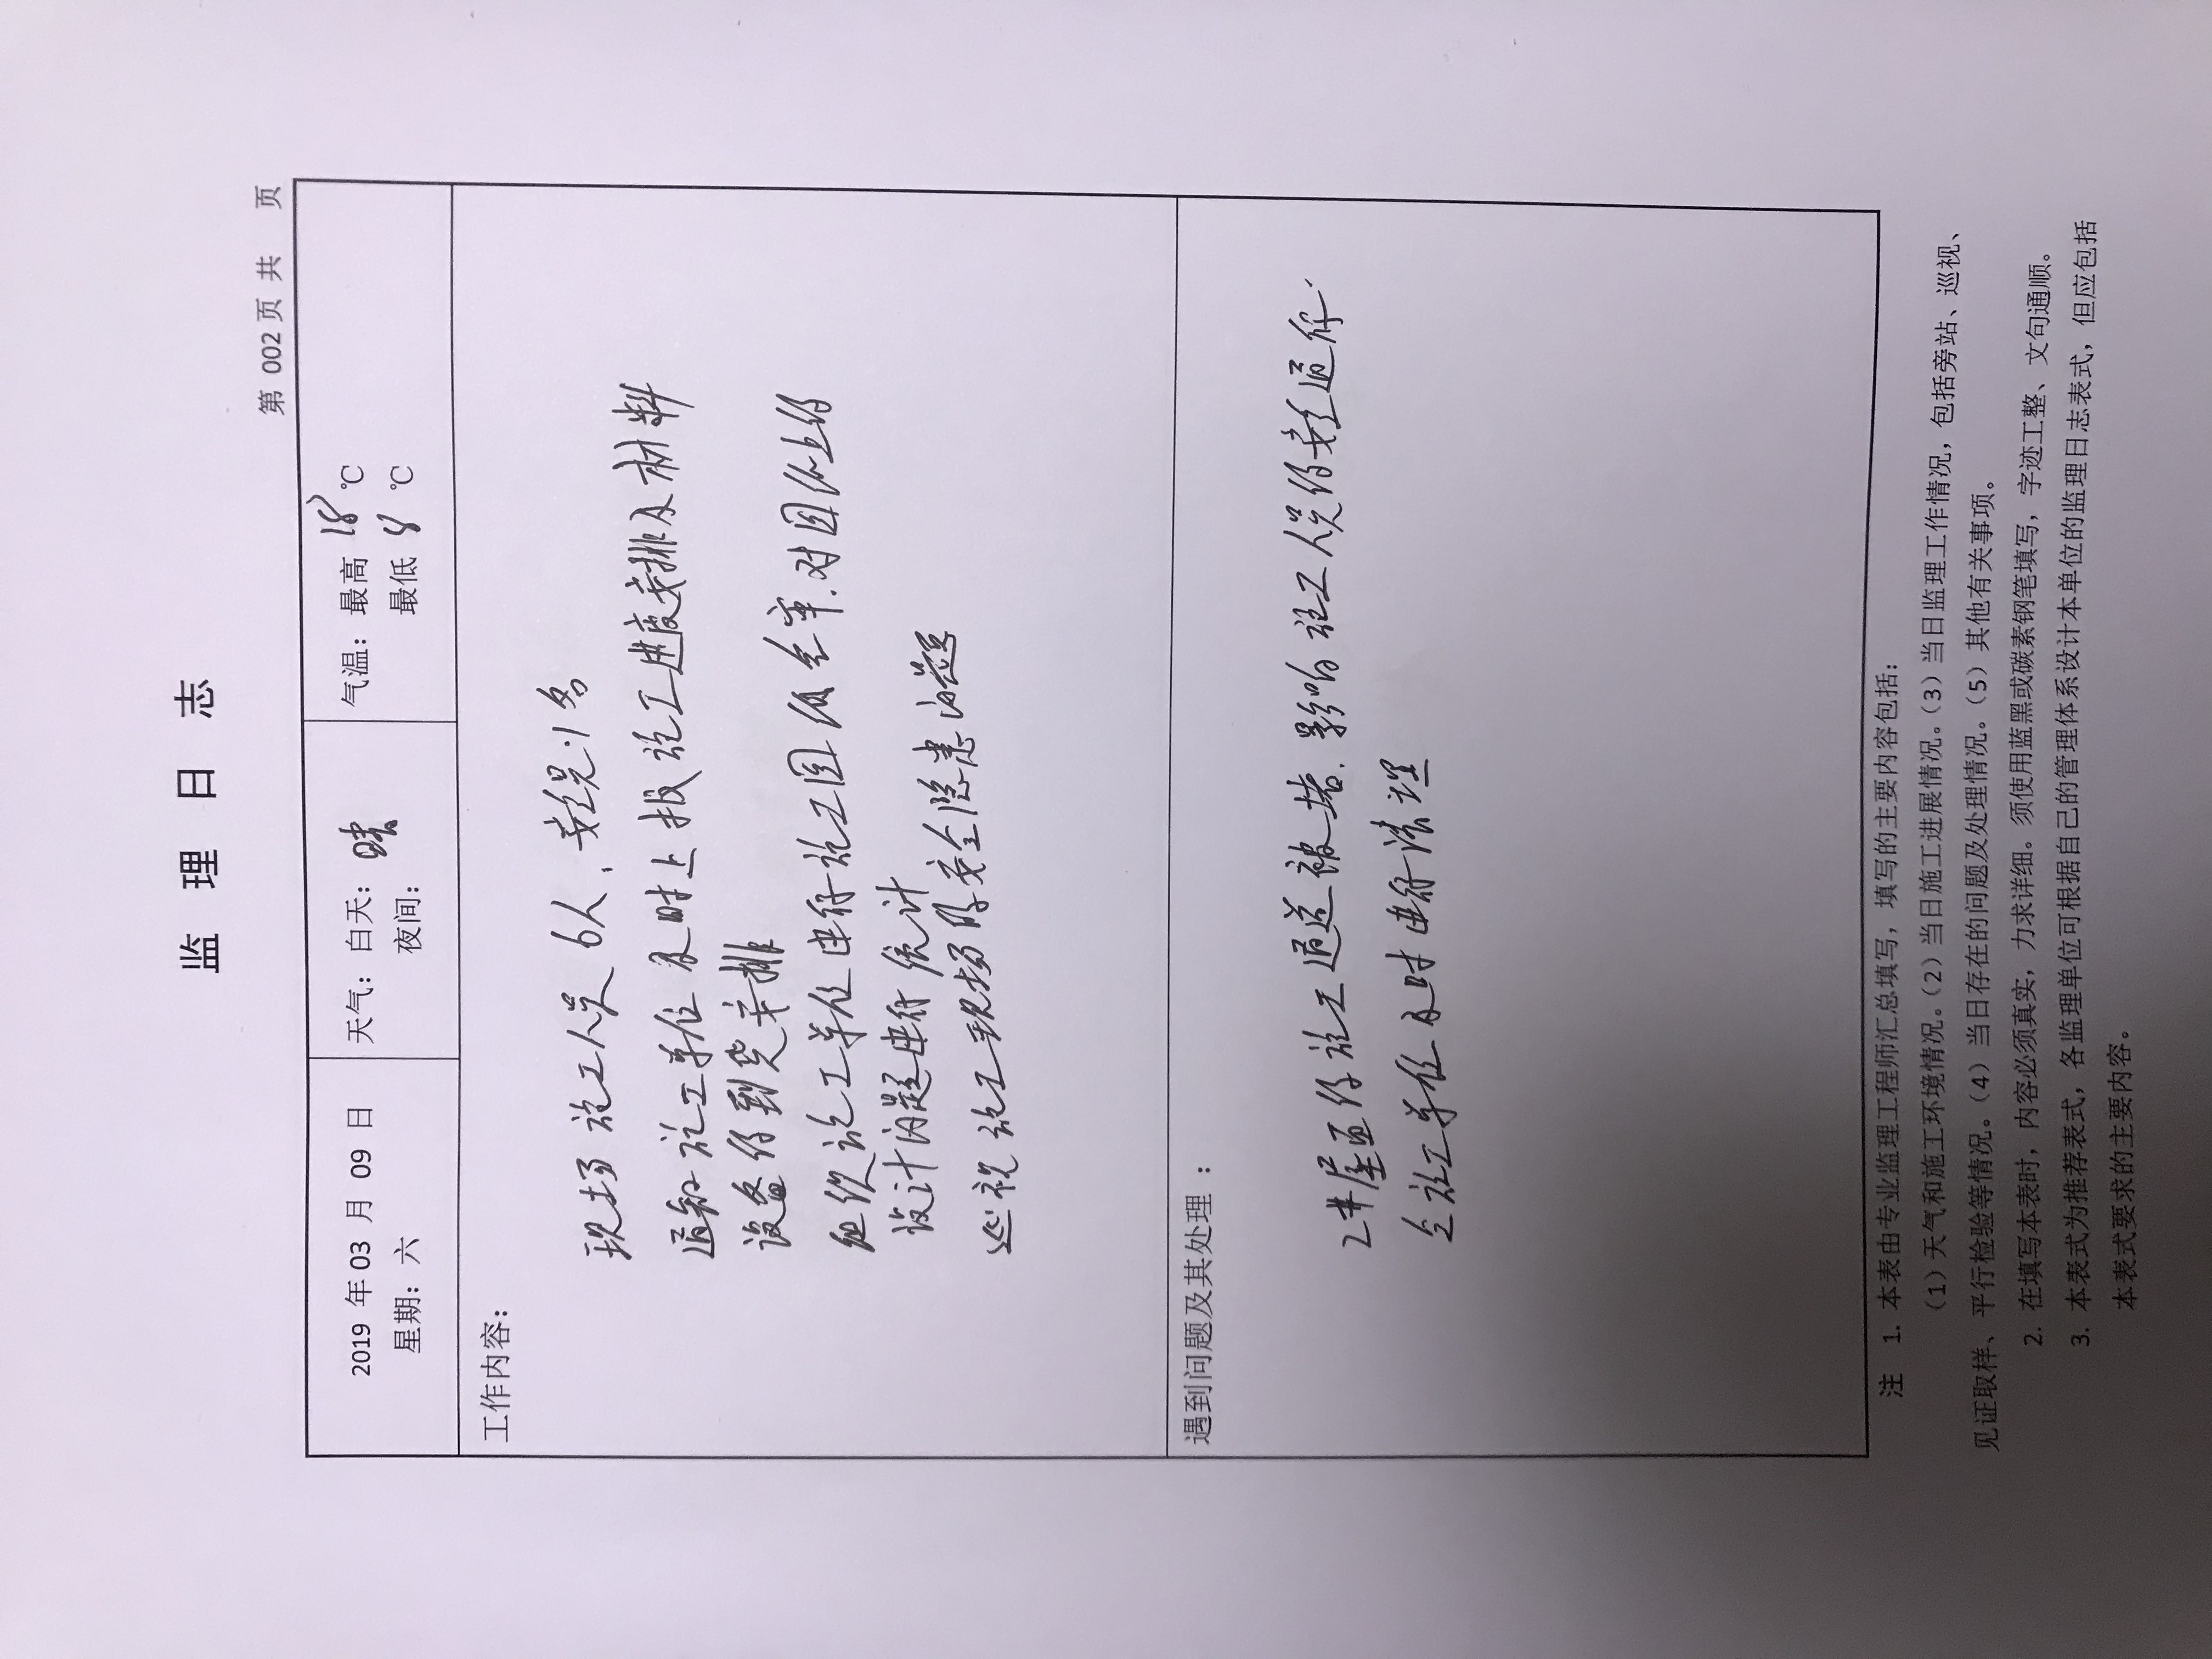 监 理 日 志
第 002 页 共 页
2019 年 03 月 09 日
星期：六
天气：白天：晴
夜间：
气温：最高 18 ℃
最低 8 ℃
工作内容：
现场施工人员 6人、安绲:1名
通知施工单位及时上报施工进度安排及材料
设备的到货安排
组织施工单位进行施工图纸会审.对图纸上的
设计问题进行统计
巡视施工现场的安全隐患问题
遇到问题及其处理：
2#屋面的施工通道被堵.影响施工人员的安全通行.
令施工单位及时进行清理
注 1. 本表由专业监理工程师汇总填写，填写的主要内容包括：
（1）天气和施工环境情况。（2）当日施工进展情况。（3）当日监理工作情况，包括旁站、巡视、
见证取样、平行检验等情况。（4）当日存在的问题及处理情况。（5）其他有关事项。
2. 在填写本表时，内容必须真实，力求详细。须使用蓝黑或碳素钢笔填写，字迹工整、文句通顺。
3. 本表式为推荐表式，各监理单位可根据自己的管理体系设计本单位的监理日志表式，但应包括
本表式要求的主要内容。